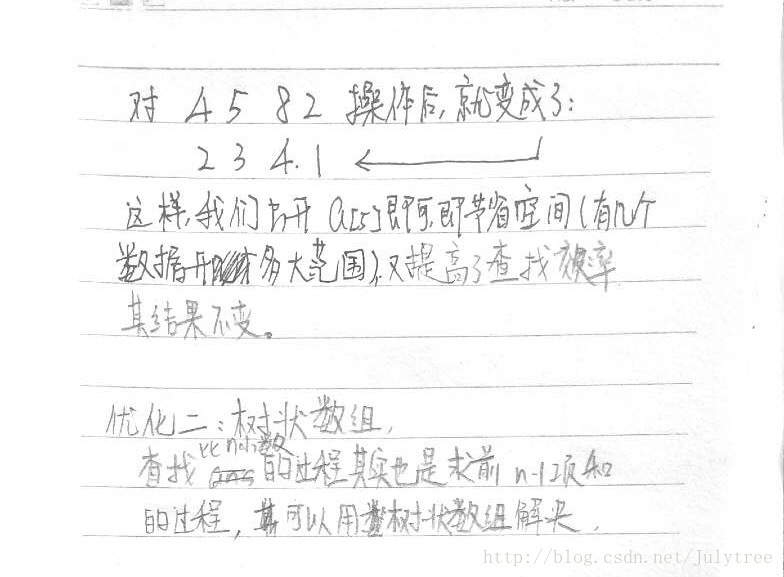 对 4 5 8 2 操作后,就变成了:
2 3 4.1
这样,我们打开 a[5]即可,即节省空间(有几个
数据开多大范围),又提高了查找效率
其结果不变。
优化二:树状数组,
查找比n小数的过程其实也是求前 n-1项和
的过程,可以用树状数组解决.
http://blog.csdn.net/julytree